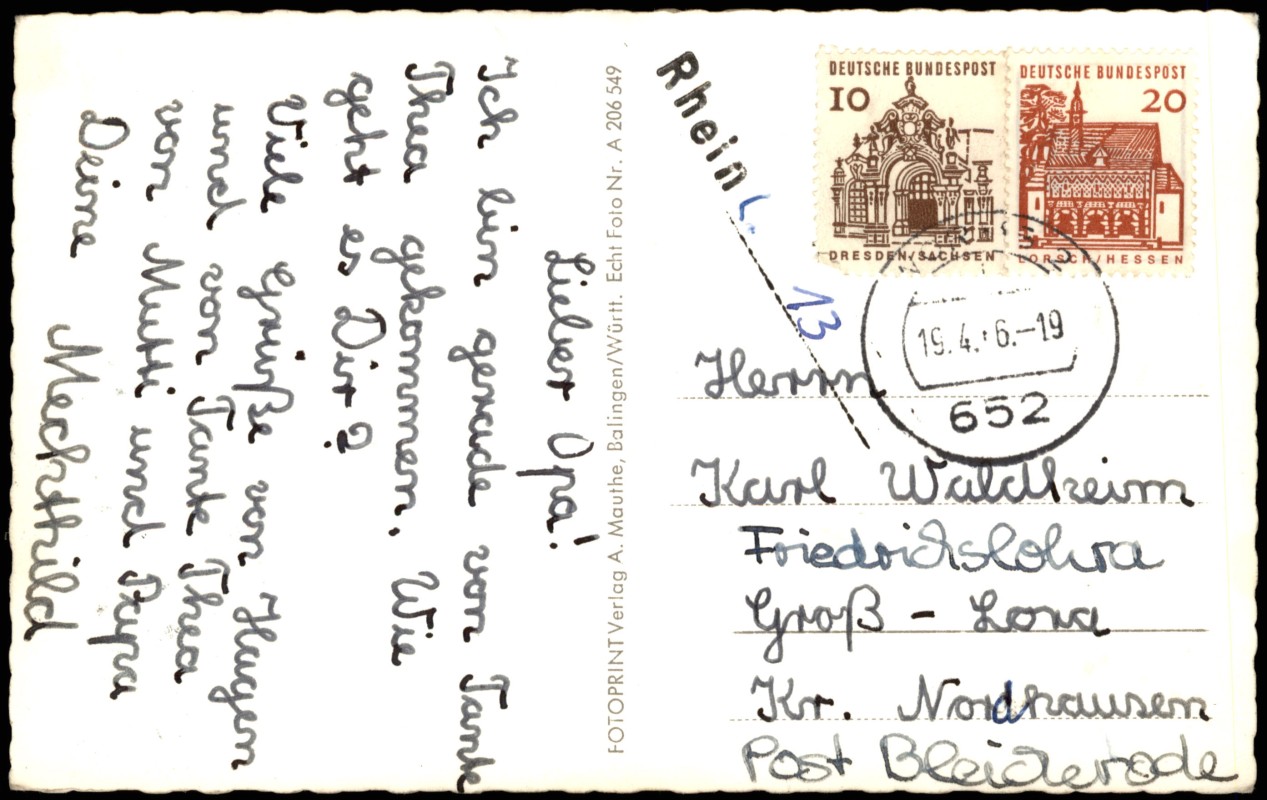 Lieber Opa!
Ich bin gerade von Tante
Thea gekommen. Wie
geht es Dir?
Viele Grüße von Hagen
und von Tante Thea
von Mutti und Papa
Deine Mechthild
FOTOPRINT Verlag A. Mauthe, Balingen/Württ. Echt Foto Nr. A 206 549
Rhein
L.
13
DEUTSCHE BUNDESPOST
10
DRESDEN/SACHSEN
DEUTSCHE BUNDESPOST
20
LORSCH/HESSEN
19.4. 6.-19
652
Herrn
Karl Waldheim
Friedrichslohra
Groß - Lora
Kr. Nordhausen
Post Bleicherode